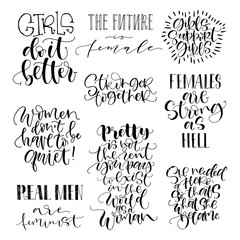 GIRLS
do it
better
THE FUTURE
is
female
Girls
Support
Girls
Stronger
together
FEMALES
are
Strong
as
HELL
Women
don't
have to be
quiet!
Pretty
is not
the rent
you pay
to exist
in the
world
as a
woman
REAL MEN
are
feminist
She needed
a Hero
So that's
what she
became